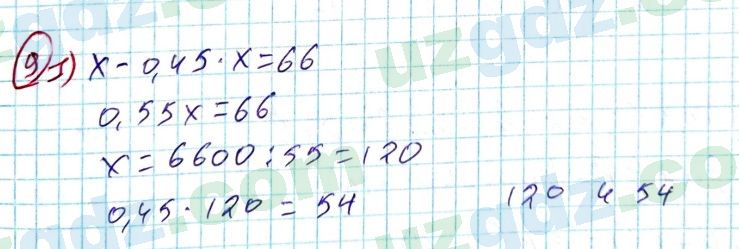 9) 1) x - 0,45 · x = 66
0,55x = 66
x = 6600 : 55 = 120
0,45 · 120 = 54 120 и 54
uzgdz.com